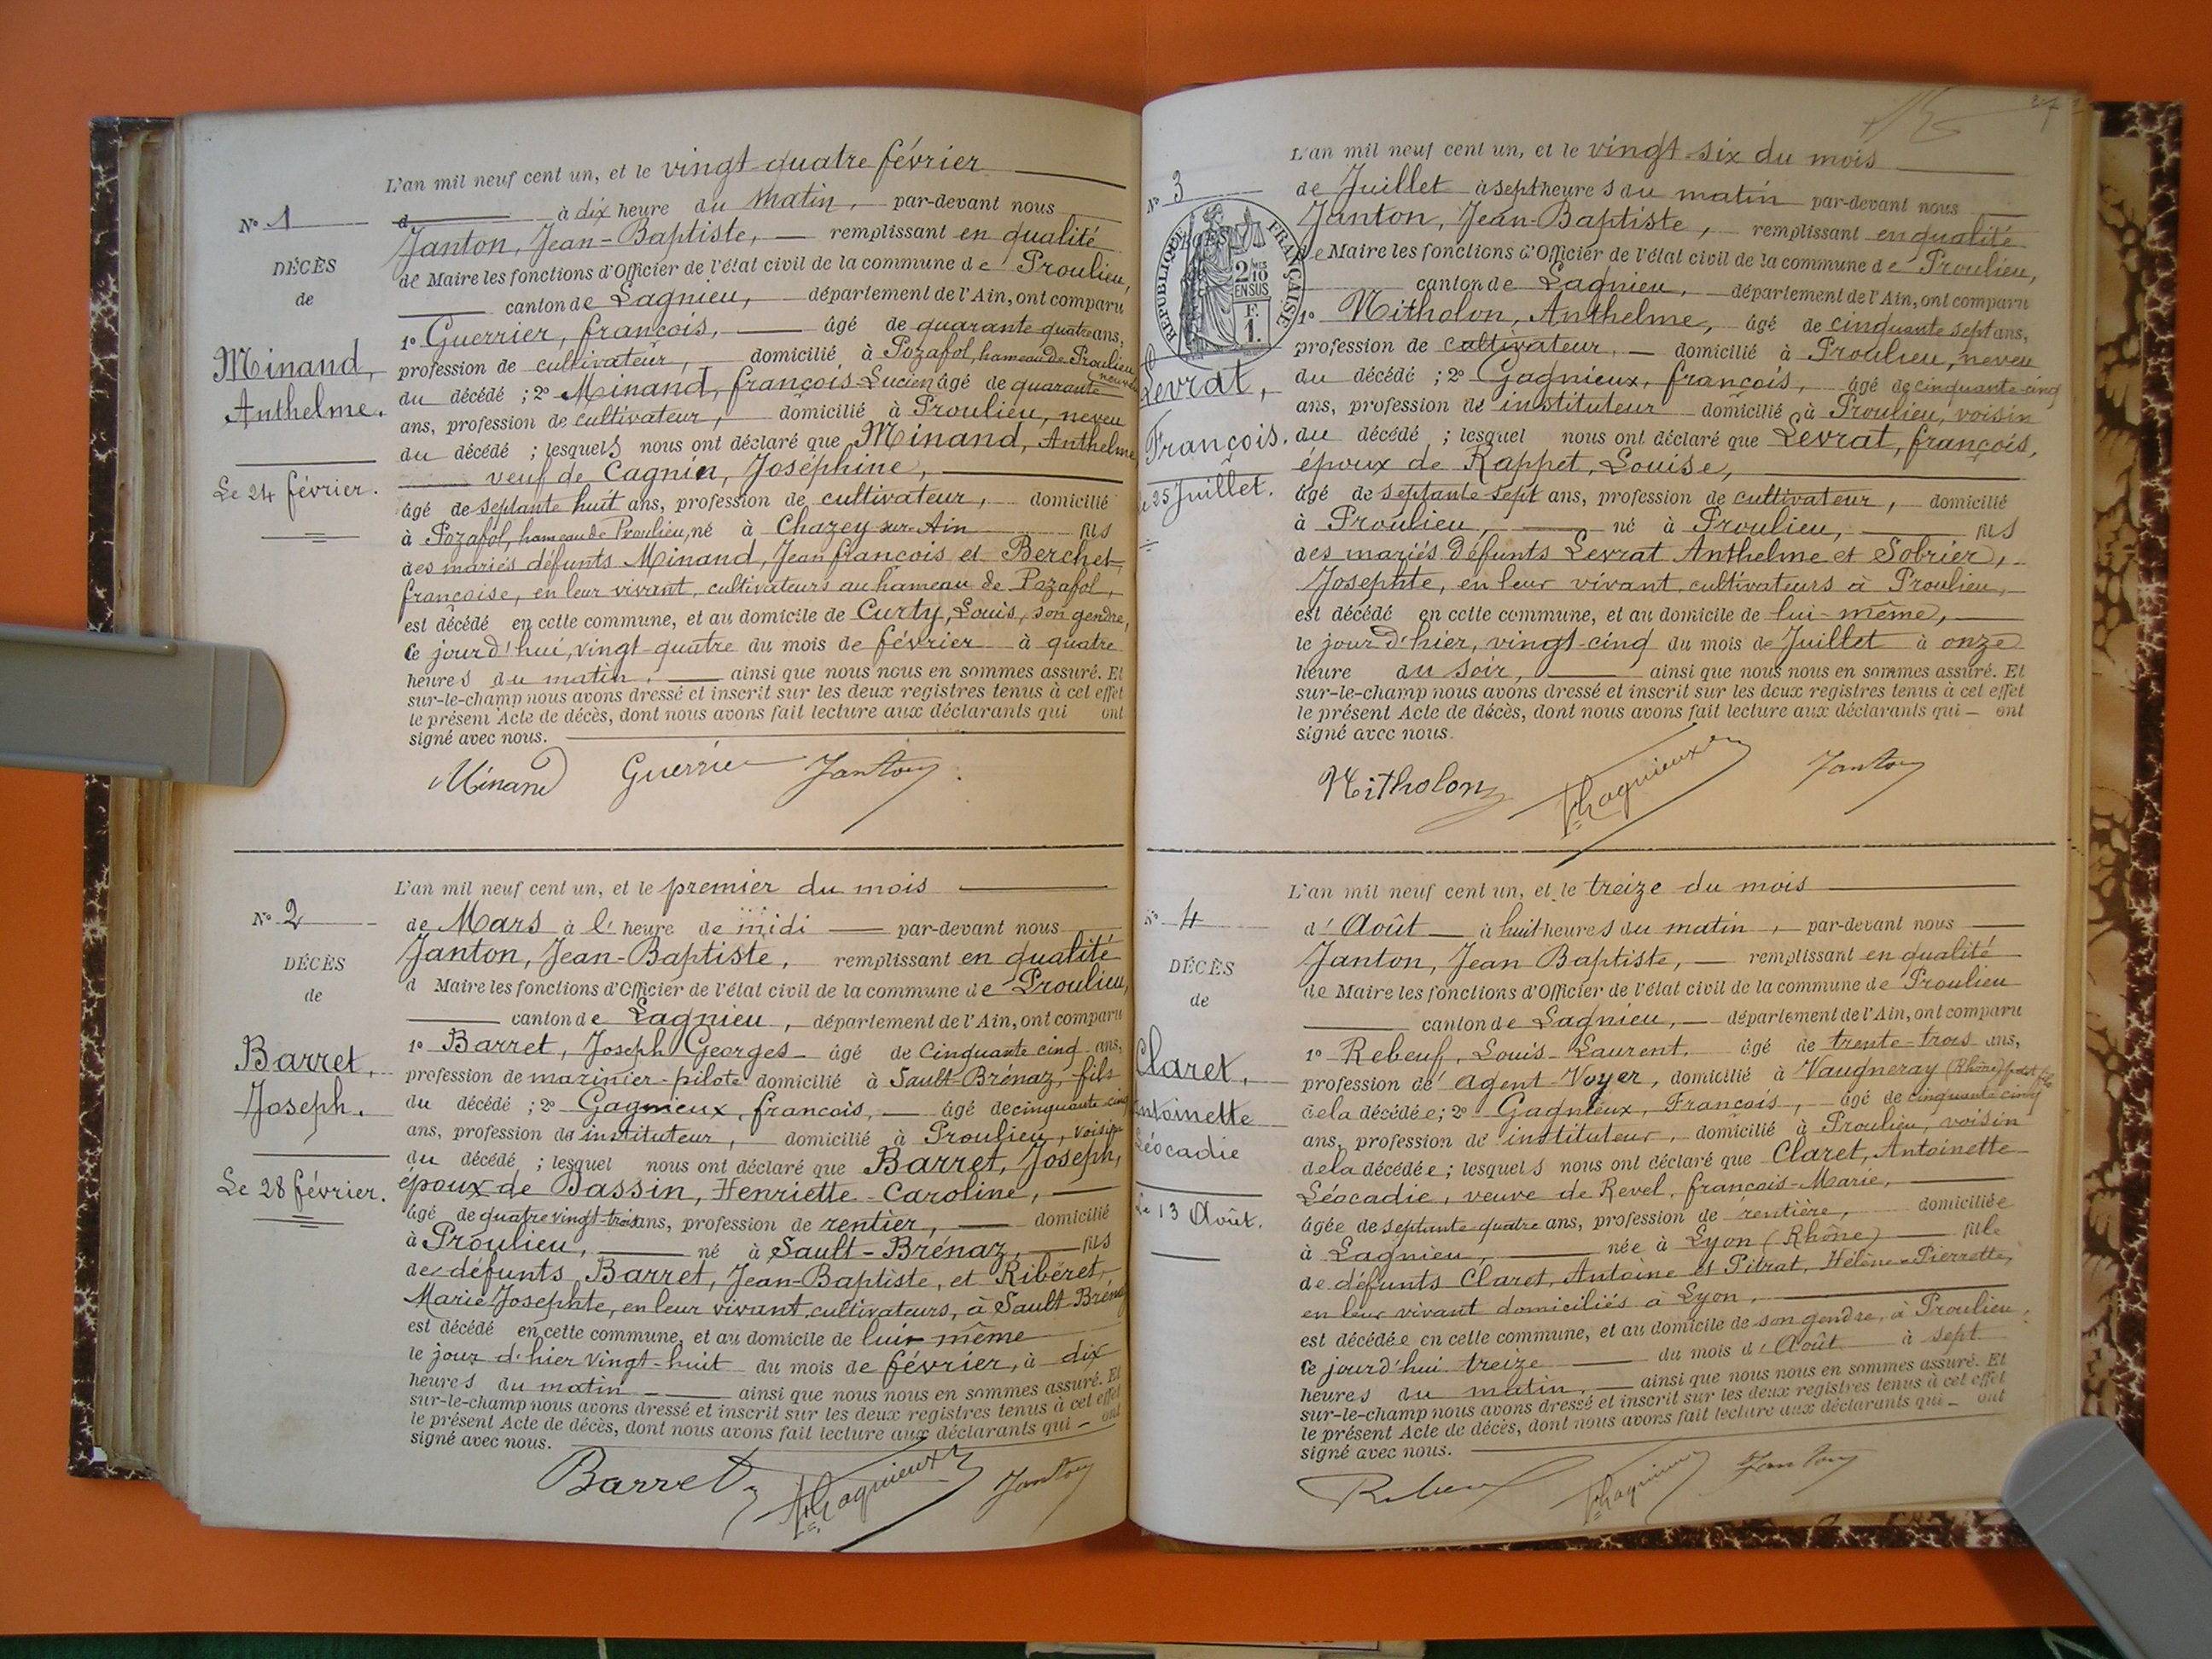 L'an mil neuf cent un, et le vingt-quatre février
N° 1
d à dix heure du matin, par-devant nous
Janton, Jean-Baptiste, remplissant en qualité
DÉCÈS
de Maire les fonctions d'Officier de l'état civil de la commune de Proulieu,
de
canton de Lagnieu, département de l'Ain, ont comparu
1° Guerrier, françois, âgé de quarante quatre ans,
Minand,
profession de cultivateur, domicilié à Pozafol, hameau de Proulieu neveu
du décédé ; 2° Minand, françois-Lucien âgé de quarante
Anthelme.
ans, profession de cultivateur, domicilié à Proulieu, neveu
du décédé ; lesquels nous ont déclaré que Minand, Anthelme
veuf de Cagnin, Joséphine,
Le 24 février.
âgé de septante huit ans, profession de cultivateur, domicilié
à Pozafol, hameau de Proulieu, né à Chazey sur Ain fils
des mariés défunts Minand, Jean françois et Berchet
françoise, en leur vivant, cultivateurs au hameau de Pozafol,
est décédé en cette commune, et au domicile de Curty, Louis, son gendre,
ce jour d'hui, vingt-quatre du mois de février à quatre
heures du matin, ainsi que nous nous en sommes assuré. Et
sur-le-champ nous avons dressé et inscrit sur les deux registres tenus à cet effet
le présent Acte de décès, dont nous avons fait lecture aux déclarants qui ont
signé avec nous.
Minand Guerrier Janton
L'an mil neuf cent un, et le premier du mois
N° 2
de Mars à l' heure de midi par-devant nous
Janton, Jean-Baptiste, remplissant en qualité
DÉCÈS
d Maire les fonctions d'Officier de l'état civil de la commune de Proulieu,
de
canton de Lagnieu, département de l'Ain, ont comparu
1° Barret, Joseph Georges âgé de Cinquante cinq ans,
Barret,
profession de marinier-pilote domicilié à Sault-Brénaz, fils
du décédé ; 2° Gagnieux, françois, âgé de cinquante cinq
Joseph.
ans, profession de instituteur, domicilié à Proulieu, voisin
du décédé ; lesquel nous ont déclaré que Barret, Joseph,
Le 28 février.
époux de Dassin, Henriette-Caroline,
âgé de quatre vingt-trois ans, profession de rentier, domicilié
à Proulieu, né à Sault-Brénaz, fils
de défunts Barret, Jean-Baptiste, et Ribéret,
Marie Josephte, en leur vivant cultivateurs, à Sault Brénaz
est décédé en cette commune, et au domicile de lui-même
le jour d'hier vingt-huit du mois de février, à dix
heures du matin ainsi que nous nous en sommes assuré. Et
sur-le-champ nous avons dressé et inscrit sur les deux registres tenus à cet effet
le présent Acte de décès, dont nous avons fait lecture aux déclarants qui ont
signé avec nous.
Barret Gagnieux Janton
L'an mil neuf cent un, et le vingt-six du mois
N° 3
de Juillet à sept heures du matin par-devant nous
Janton, Jean-Baptiste, remplissant en qualité
RÉPUBLIQUE FRANÇAISE
2 10 MES
EN SUS
F. 1.
de Maire les fonctions d'Officier de l'état civil de la commune de Proulieu,
canton de Lagnieu, département de l'Ain, ont comparu
1° Nitholon, Anthelme, âgé de cinquante sept ans,
profession de cultivateur, domicilié à Proulieu, neveu
Levrat,
du décédé ; 2° Gagnieux, françois, âgé de cinquante-cinq
ans, profession de instituteur domicilié à Proulieu, voisin
François.
du décédé ; lesquel nous ont déclaré que Levrat, françois,
époux de Rappet, Louise,
le 25 Juillet.
âgé de septante-sept ans, profession de cultivateur, domicilié
à Proulieu, né à Proulieu, fils
des mariés défunts Levrat Anthelme et Sobrier,
Josephte, en leur vivant cultivateurs à Proulieu,
est décédé en cette commune, et au domicile de lui-même,
le jour d'hier, vingt-cinq du mois de Juillet à onze
heure du soir, ainsi que nous nous en sommes assuré. Et
sur-le-champ nous avons dressé et inscrit sur les deux registres tenus à cet effet
le présent Acte de décès, dont nous avons fait lecture aux déclarants qui ont
signé avec nous.
Nitholon Gagnieux Janton
L'an mil neuf cent un, et le treize du mois
N° 4
d' Août à huit heures du matin, par-devant nous
Janton, Jean Baptiste, remplissant en qualité
DÉCÈS
de Maire les fonctions d'Officier de l'état civil de la commune de Proulieu
de
canton de Lagnieu, département de l'Ain, ont comparu
1° Rebeuf, Louis-Laurent, âgé de trente-trois ans,
Claret,
profession de agent-Voyer, domicilié à Vaugneray (Rhône) petit fils
de la décédée ; 2° Gagnieux, François, âgé de cinquante cinq
Antoinette
ans, profession de instituteur, domicilié à Proulieu, voisin
Léocadie
de la décédée ; lesquels nous ont déclaré que Claret, Antoinette
Léocadie, veuve de Revel, françois-Marie,
Le 13 Août.
âgée de septante quatre ans, profession de rentière, domiciliée
à Lagnieu, née à Lyon (Rhône) fille
de défunts Claret, Antoine et Pitrat, Hélène-Pierrette,
en leur vivant domiciliés à Lyon,
est décédée en cette commune, et au domicile de son gendre, à Proulieu,
ce jourd'hui treize du mois d'Août à sept
heures du matin, ainsi que nous nous en sommes assuré. Et
sur-le-champ nous avons dressé et inscrit sur les deux registres tenus à cet effet
le présent Acte de décès, dont nous avons fait lecture aux déclarants qui ont
signé avec nous.
Rebeuf Gagnieux Janton